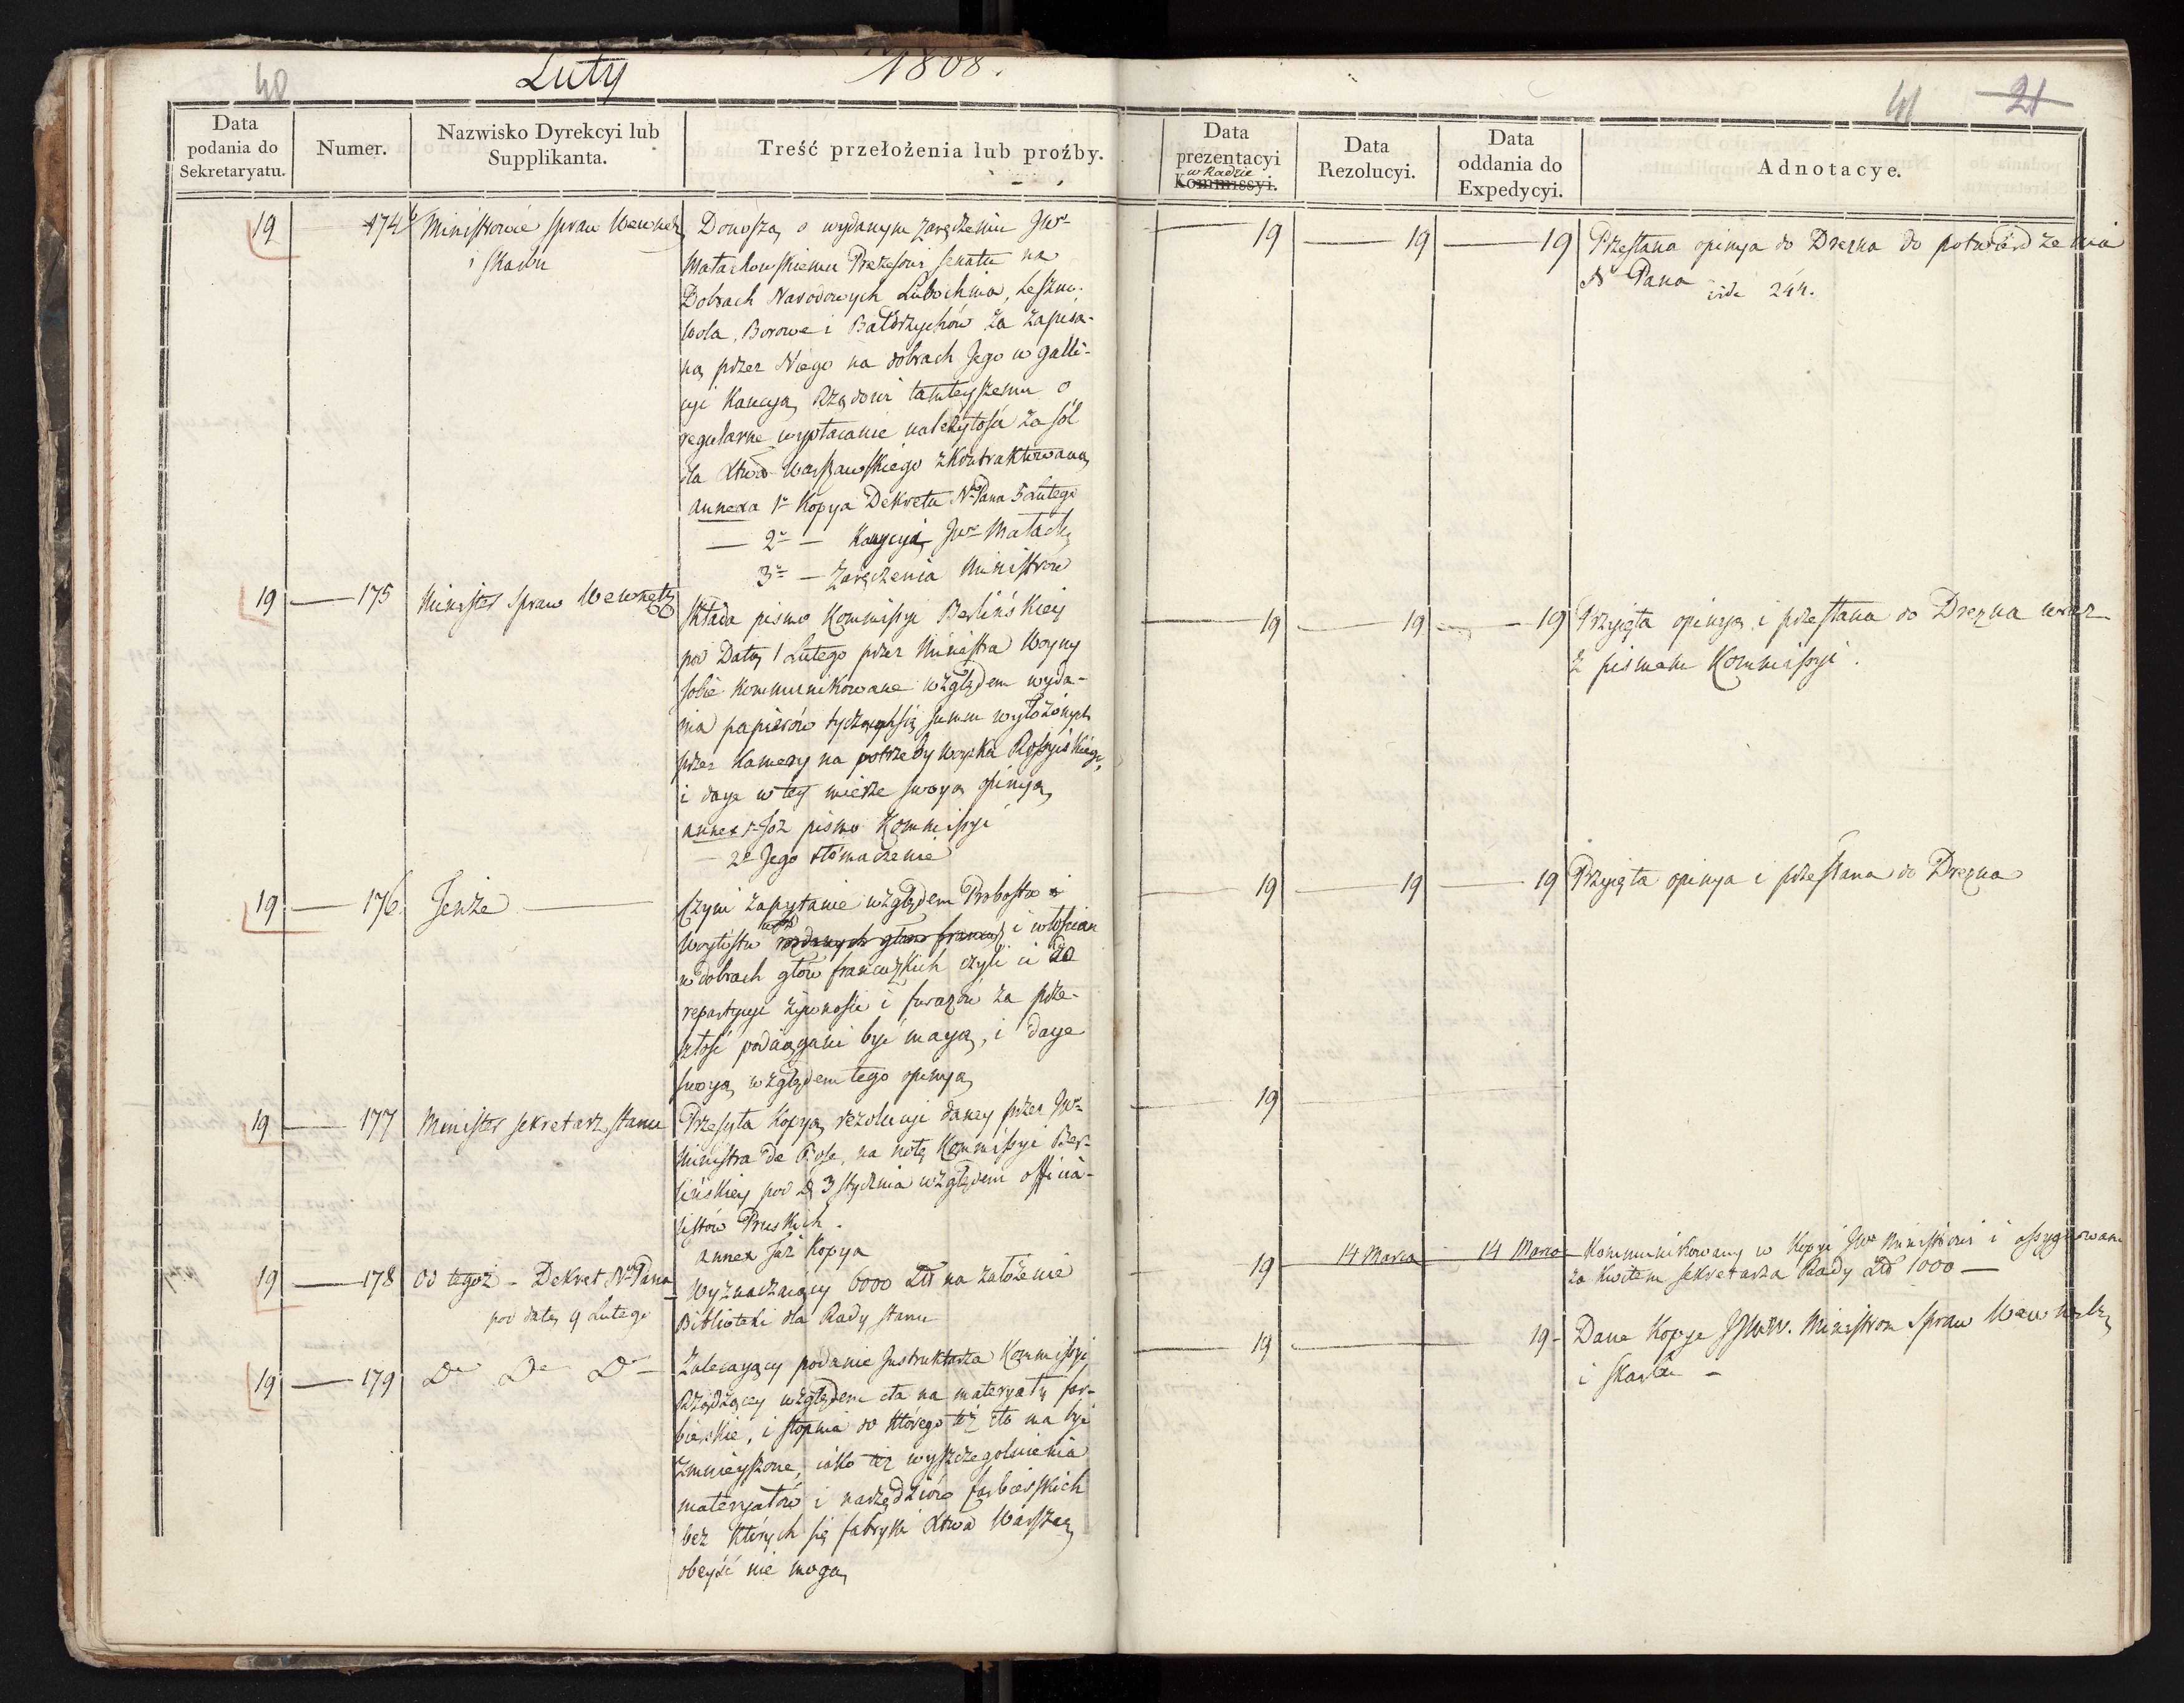 40
Luty 1808.
41 21
Data podania do Sekretaryatu.
Numer.
Nazwisko Dyrekcyi lub Supplikanta.
Treść przełożenia lub proźby.
Data prezentacyi w Radzie Kommissyi.
Data Rezolucyi.
Data oddania do Expedycyi.
Adnotacye.
19 174 Ministrowie spraw Wewnętrz
i skarbu
Donoszą o wydanym zaręczeniu JWu
Małachowskiemu Prezesowi senatu na
Dobrach Narodowych Lubochnia, Leszno-
wola, Borowe i Bałdrzychów za zapisa-
ną przez Niego na dobrach Jego w galli-
cyi Kaucyą Rządowi tamteyszemu o
regularne wypłacanie należytości za sól
dla Xtwa Warszawskiego zkontraktowaną
annexa 1o Kopya Dekretu No Pana 5 Lutego
— 2o — Kaucyi JWo Małach
3o — Zaręczenia Ministrów
19 — 19 — 19 Przesłana opinya do Drezna do potwierdzenia
No Pana vide 244.
19 — 175 Minister Spraw Wewnętrz
Składa pismo Kommissyi Berlińskiey
pod Datą 1 Lutego przez Ministra Woyny
sobie kommunikowane względem wyda-
nia papierów tyczących się summ wyłożonych
przez Kamery na potrzeby woyska Rossyiskiego,
i daye w tey mierze swoyą opinyą
annex 1o Toż pismo Kommissyi
— 2o Jego tłómaczenie
19 — 19 — 19 Przyięta opinya i przesłana do Drezna wraz
z pismem Kommissyi.
19 — 176 Tenże —
Czyni zapytanie względem Probostw i
Woytostw i włościan
w dobrach głów francuzkich czyli ci do
repartycyi żywności i furażów za prze-
szłość pociągani być mayą, i daye
swoyą względem tego opinyą
19 — 19 — 19 Przyięta opinya i przesłana do Drezna
19 — 177 Minister sekretarz stanu
Przesyła Kopyą rezolucyi daney przez JWo
Ministra de Bose, na notę Kommissyi Ber-
lińskiey pod d 3 stycznia względem officia-
listów Pruskich.
annex Taż Kopya
19
19 — 178 Od tegoż - Dekret No Pana
pod datą 9 Lutego
Wyznaczaiący 6000 Zł na założenie
Biblioteki dla Rady stanu
19 — 14 Marca — 14 Marca — Kommunikowany w Kopyi JWo Ministrowi i assygnowane
za kwitem sekretarza Rady Zł 1000 —
19 — 179 Do Do Do —
Zalecayący podanie Instruktarza Kommissyi
Rządzącey względem cła na materyały far-
bierskie, i stopnia do którego też cło ma być
zmnieyszone, iako też wyszczególnienia
materyałów i narzędziów farbierskich
bez których się fabryki Xtwa Warszaw
obeyść nie mogą
19 — 19 - Dane Kopye JJWW. Ministrom Spraw Wewnętrz
i skarbu —